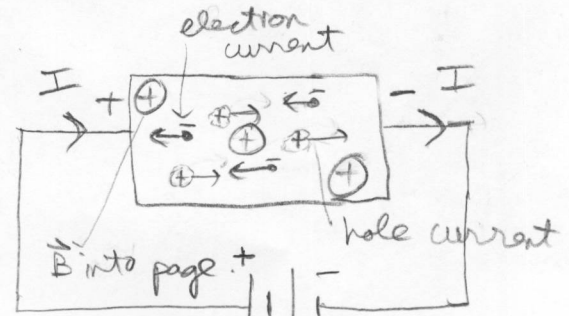 electron
current
I + - I
hole current
B into page. + -